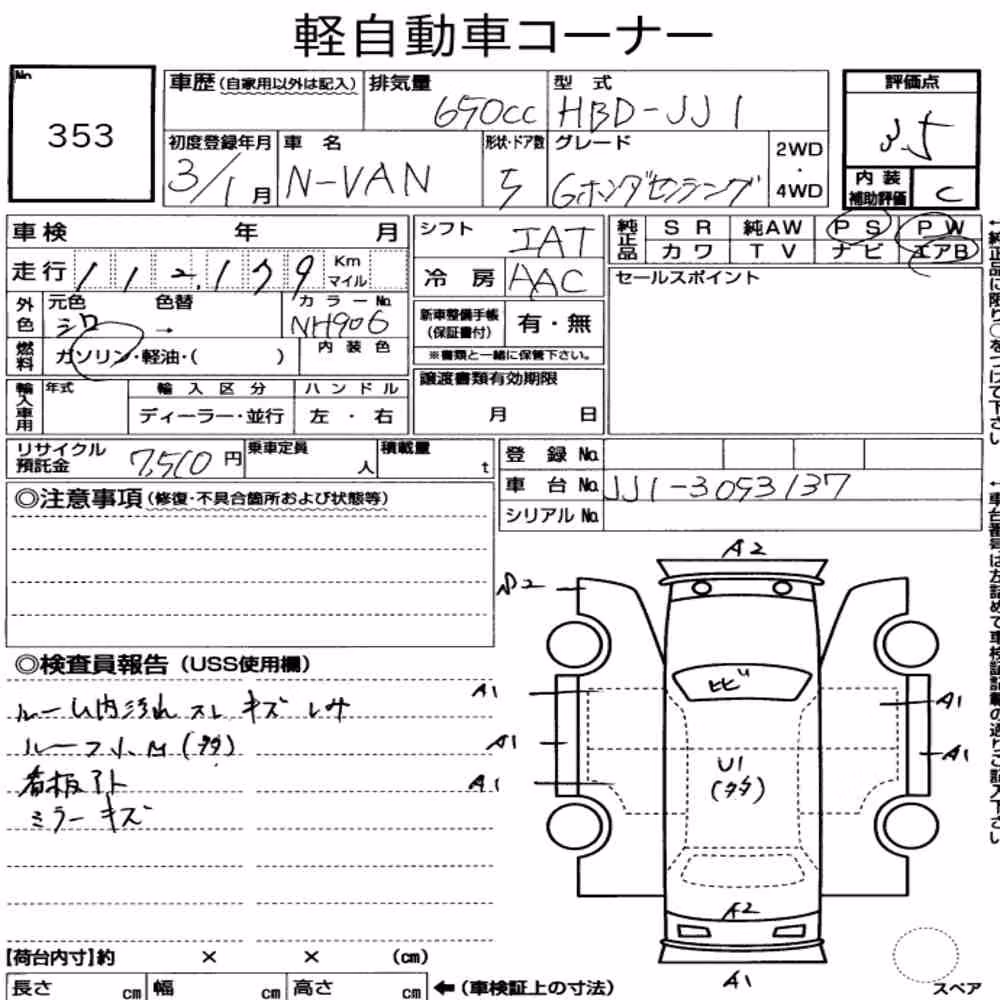 軽自動車コーナー
No. 353
車歴 (自家用以外は記入) 排気量 650cc 型式 HBD-JJ1 評価点 3.5
初度登録年月 3/1月 車名 N-VAN 形状・ドア数 5 グレード Gホンダセンシング 2WD・4WD 内装補助評価 C
車検 年 月 シフト IAT 純正品 SR 純AW PS PW
カワ TV ナビ エアB
走行 112,179 Km マイル 冷房 AAC セールスポイント
外色 元色 シロ 色替 → カラーNo. NH906 新車整備手帳(保証書付) 有・無
燃料 ガソリン・軽油・( ) 内装色 ※書類と一緒に保管下さい。
輸入車用 年式 輸入区分 ハンドル 譲渡書類有効期限
ディーラー・並行 左・右 月 日
リサイクル預託金 7,510円 乗車定員 人 積載量 t 登録No.
車台No. JJ1-3093137
シリアルNo.
◎注意事項 (修復・不具合箇所および状態等)
◎検査員報告 (USS使用欄)
ルーム内汚れ スレ キズ シミ
ルーフ小凹(多々)
看板アト
ミラーキズ
A2
A1
A1
A1
ヒビ
A1
A1
U1
(多々)
A2
A1
【荷台内寸】約 × × (cm)
長さ cm 幅 cm 高さ cm ←(車検証上の寸法) スペア
←純正品に限り○をつけて下さい
←車台番号は左詰めで車検証記載の通りご記入下さい